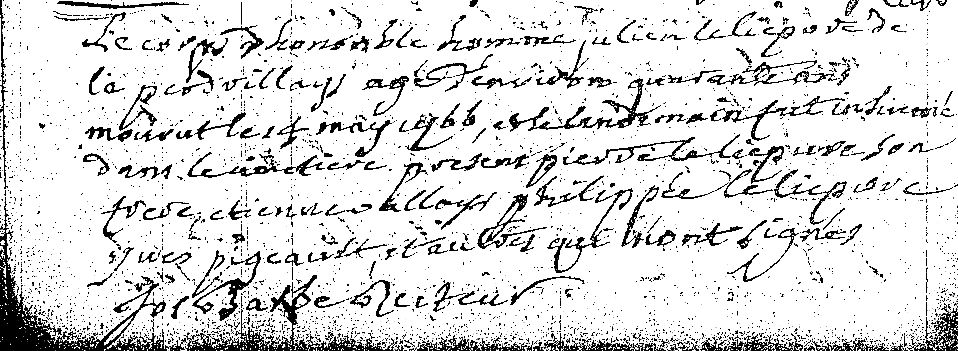 Le corps d honorable homme julien le liepvre de
la perdrillays agé d'environ quarante ans
mourut le 14 may 1766, et le landemain fut inhumé
dans le cimetiere present pierre le liepvre son
frere, etienne vallays philippe le liepvre
yves pigeault, et aultres qui n'ont signés
recteur